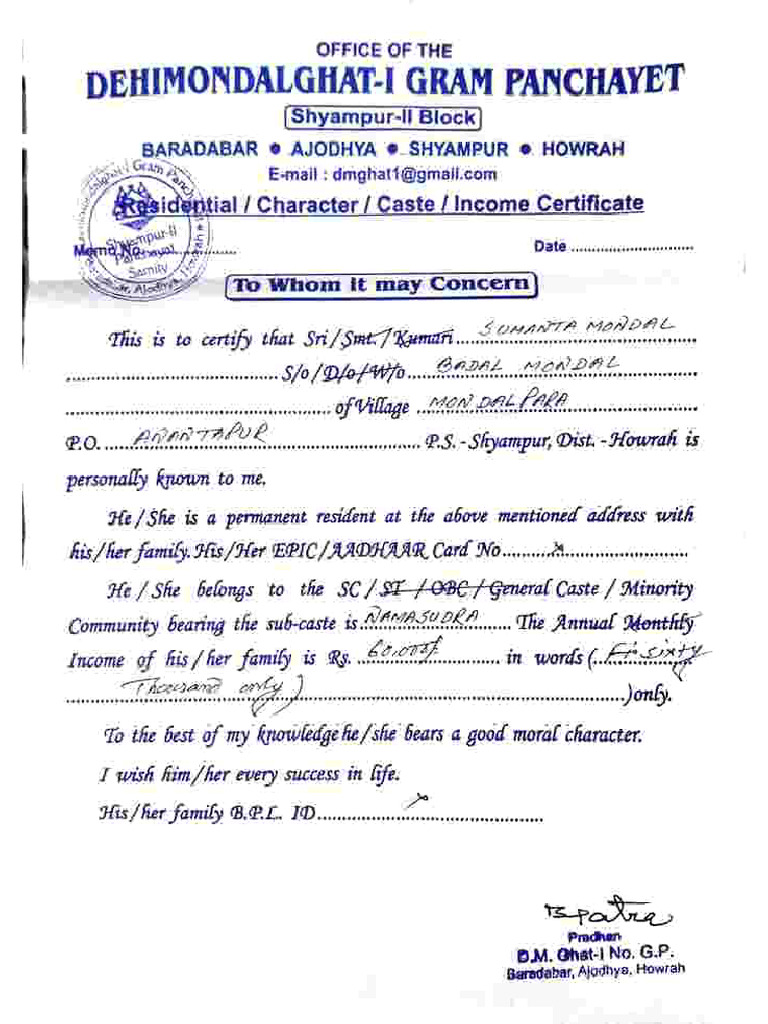 OFFICE OF THE
DEHIMONDALGHAT-I GRAM PANCHAYET
Shyampur-II Block
BARADABAR ● AJODHYA ● SHYAMPUR ● HOWRAH
E-mail : dmghat1@gmail.com
Residential / Character / Caste / Income Certificate
Memo No. .................... Date ..............................
Shyampur-II
Panchayat
Samity
To Whom It may Concern
This is to certify that Sri/Smt./Kumari SUMANTA MONDAL
S/o/D/o/W/o BADAL MONDAL
of Village MONDALPARA
P.O. ANANTAPUR P.S.-Shyampur, Dist.-Howrah is
personally known to me.
He/She is a permanent resident at the above mentioned address with
his/her family. His/Her EPIC/AADHAAR Card No..........x..............................
He/She belongs to the SC/ST/OBC/General Caste/Minority
Community bearing the sub-caste is NAMASUDRA The Annual Monthly
Income of his/her family is Rs. 60,000/ in words ( sixty
Thousand only) )only.
To the best of my knowledge he/she bears a good moral character.
I wish him/her every success in life.
His/her family B.P.L. ID.............x..............................
BPatra
Pradhan
D.M. Ghat-I No. G.P.
Baradabar, Ajodhya, Howrah